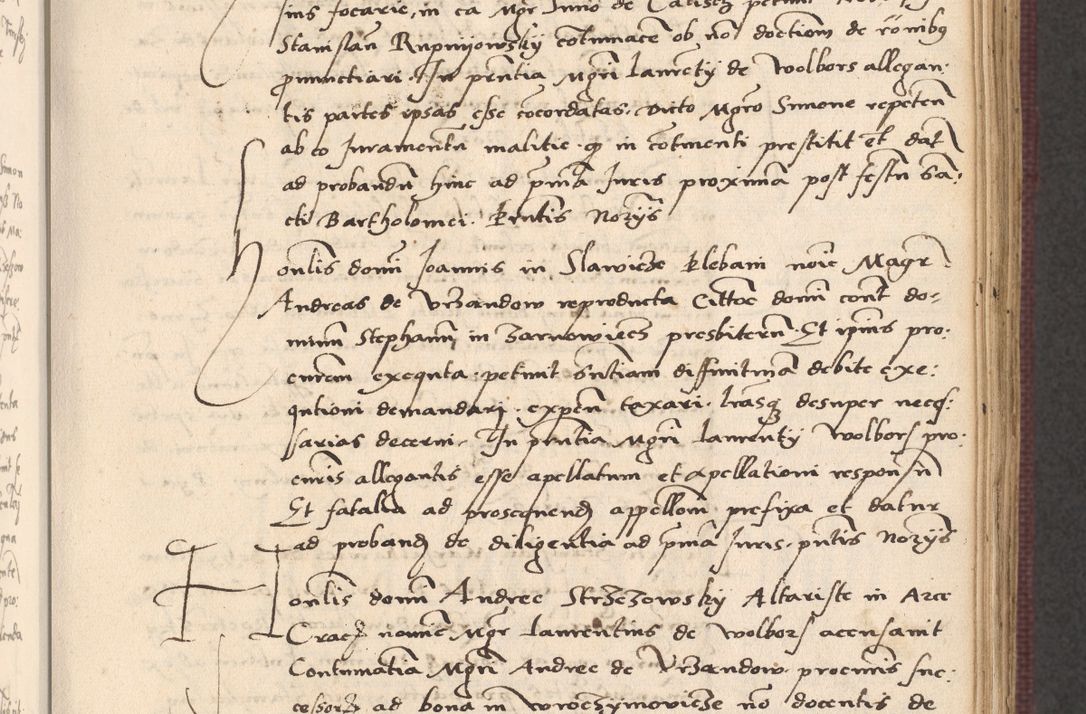 Stanislau Rupnijowsky cotumace ob no doctiom de ronibus
pronunctiari. In pntia Mgri Laurety de Wolbors allegan:
tis partes ipsas esse cocordatas. Dicto Mgro Simone repeten
ab eo Juramentu malitie q in cotinenti prestitit et dat
ad probandu hinc ad prima Juris proxima post festu San:
cti Bartholomei. Prntis Nozys
Honlis domi Joannis in Slawicze Plebani noie Magr
Andreas de Vrzandow reproducta Cittoe domi cont do=
minu Stephanu in Zarnowiecz presbiteru. Et ipius pro:
curem exequta. petiuit sntiam diffinitiua debite exe:
qutioni demandari. expen taxari. lrasq desuper neces:
sarias decerni. In pntia Mgri Laurenty Wolbors pro:
curis allegantis esse apellatum et apellationi responsu
Et fatalia ad prosequend appellom prefixa et datur
ad proband de diligentia ad prima Juris. pntis Nozys
Honlis domi Andree Strzezowsky Altariste in Arce
Crac noie Mgr Laurentius de Wolbors accusauit
Contumatia Mgri Andree de Vrzandow. procuris suc:
cessorz ad bona in Wroczymowicze no docentis de